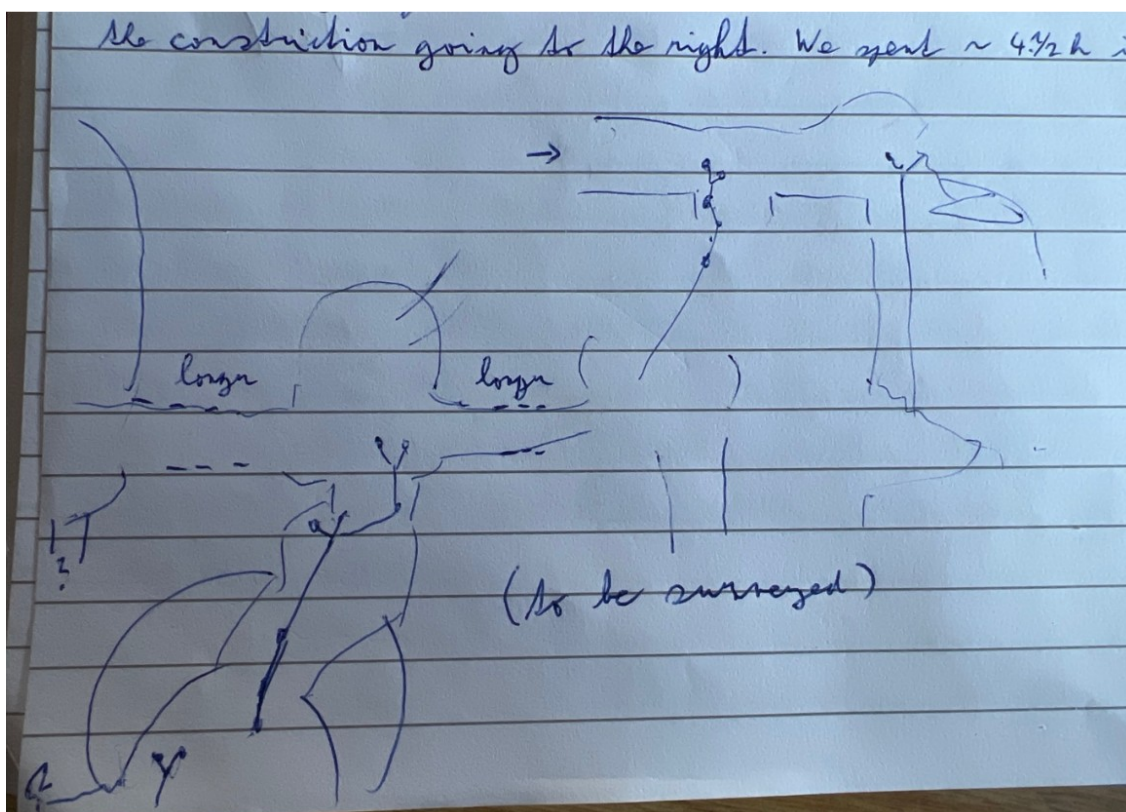 the constriction going to the right. We spent ~ 4 1/2 h
longer
longer
?
(to be surveyed)